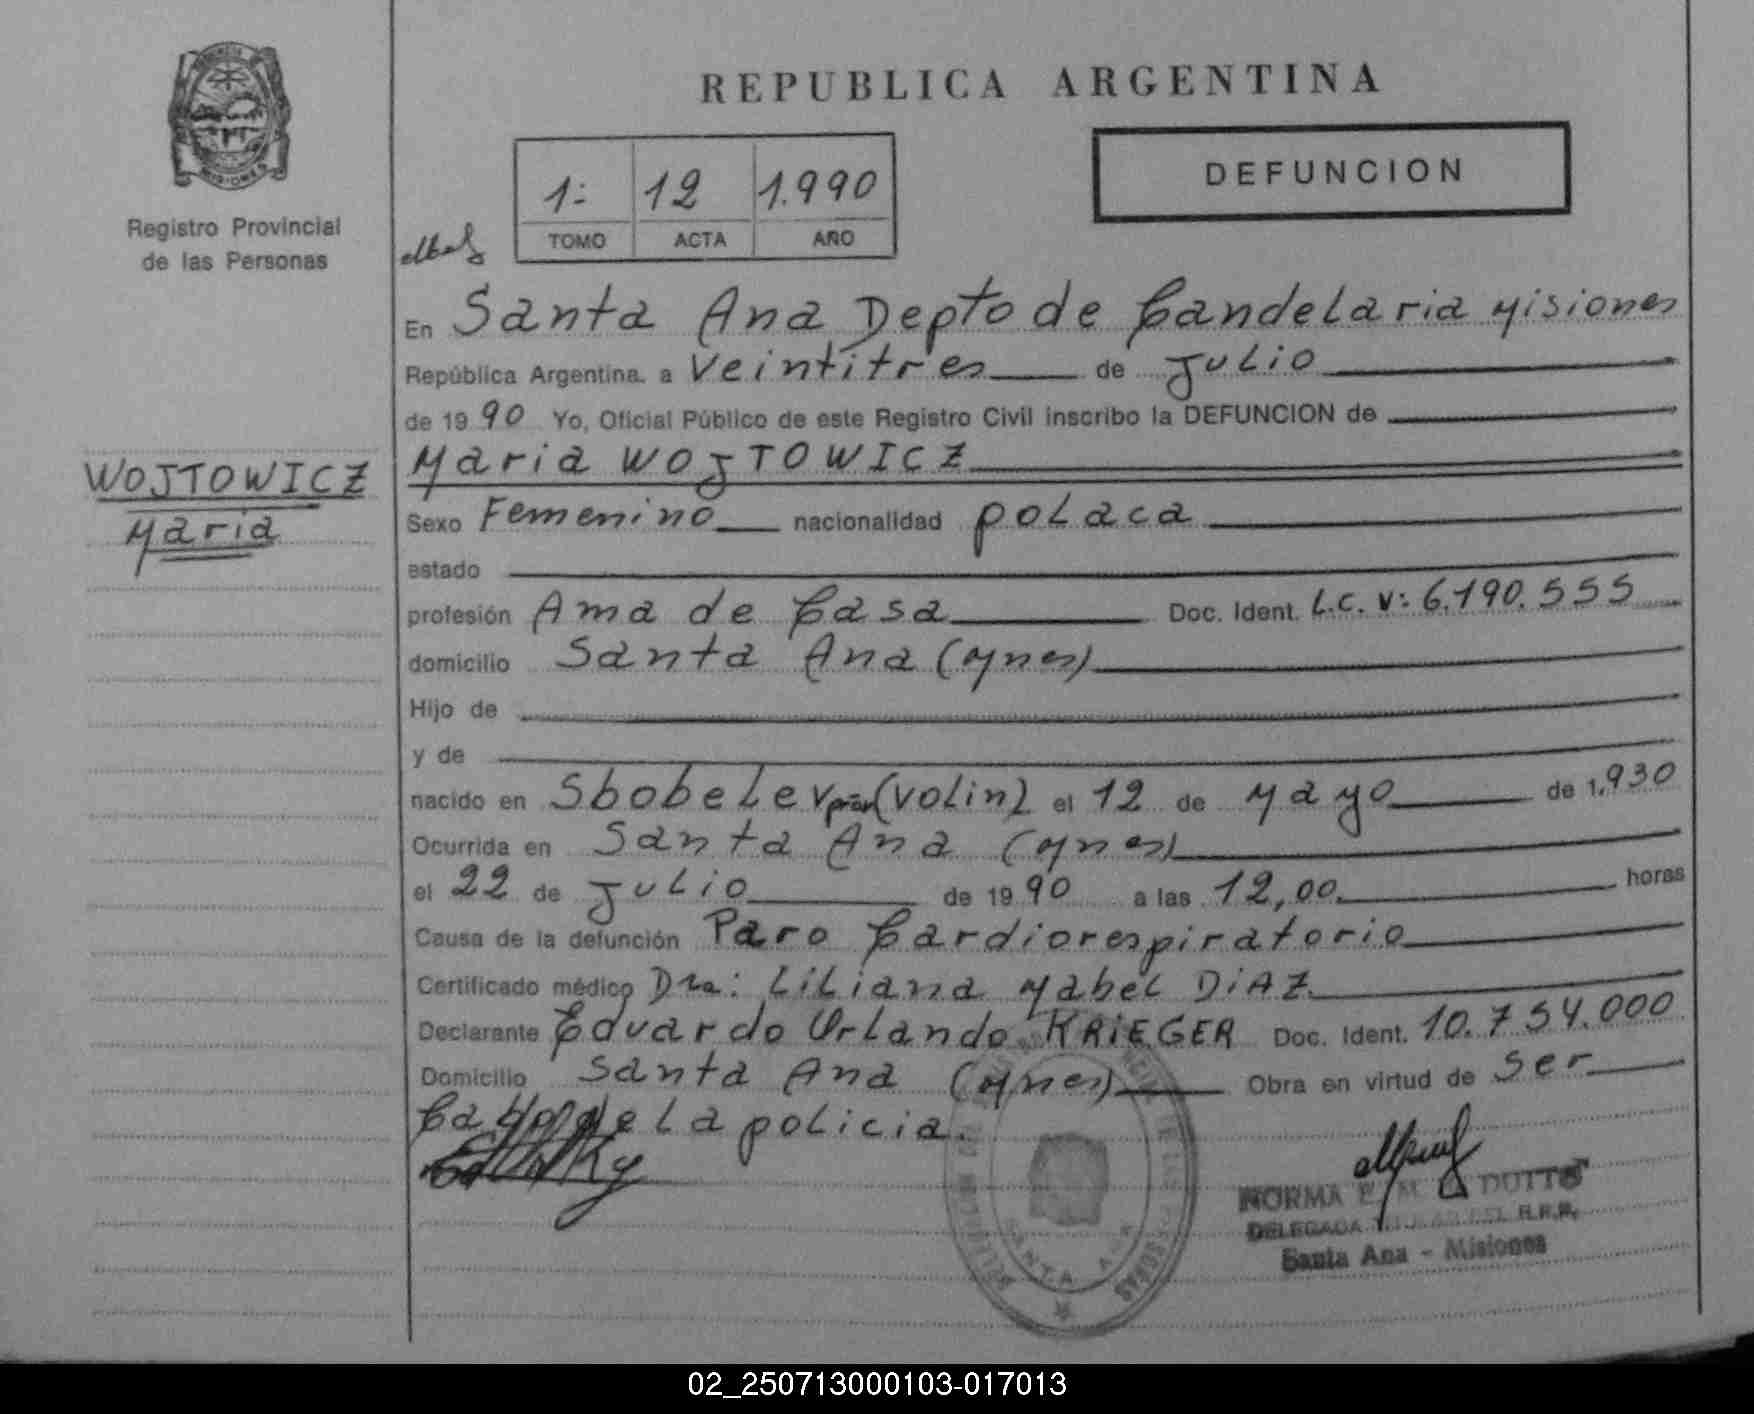 REPUBLICA ARGENTINA
MISIONES
Registro Provincial
de las Personas
1:
12
1.990
TOMO
ACTA
AÑO
DEFUNCION
En Santa Ana Depto de Candelaria Misiones
República Argentina, a Veintitres de Julio
de 1990 Yo, Oficial Público de este Registro Civil inscribo la DEFUNCION de
WOJTOWICZ
Maria
Maria WOJTOWICZ
Sexo Femenino nacionalidad polaca
estado
profesión Ama de Casa Doc. Ident. L.C. Nº: 6.190.555
domicilio Santa Ana (Mnes)
Hijo de
y de
nacido en Sbobelev (Volin) el 12 de Mayo de 1.930
Ocurrida en Santa Ana (Mnes)
el 22 de Julio de 1990 a las 12,00 horas
Causa de la defunción Paro Cardiorespiratorio
Certificado médico Dra: Liliana Mabel DiAZ
Declarante Eduardo Orlando KRiEGER Doc. Ident. 10.754.000
Domicilio Santa Ana (Mnes) Obra en virtud de Ser
Cabo de La policia.
SANTA ANA
NORMA
DELEGADA TITULAR DEL R.P.P.
Santa Ana - Misiones
02_250713000103-017013